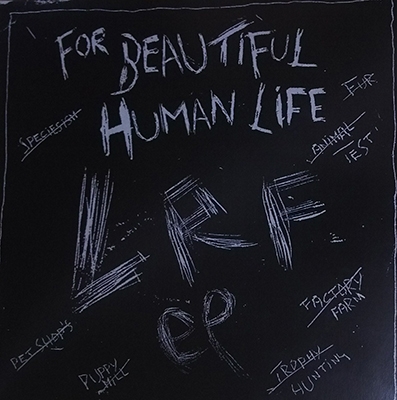 FOR BEAUTIFUL
HUMAN LIFE
FUR
SPECIESISM
ANIMAL
TEST
LRF
FACTORY
FARM
ep
PET SHOPS
PUPPY
MILL
TROPHY
HUNTING